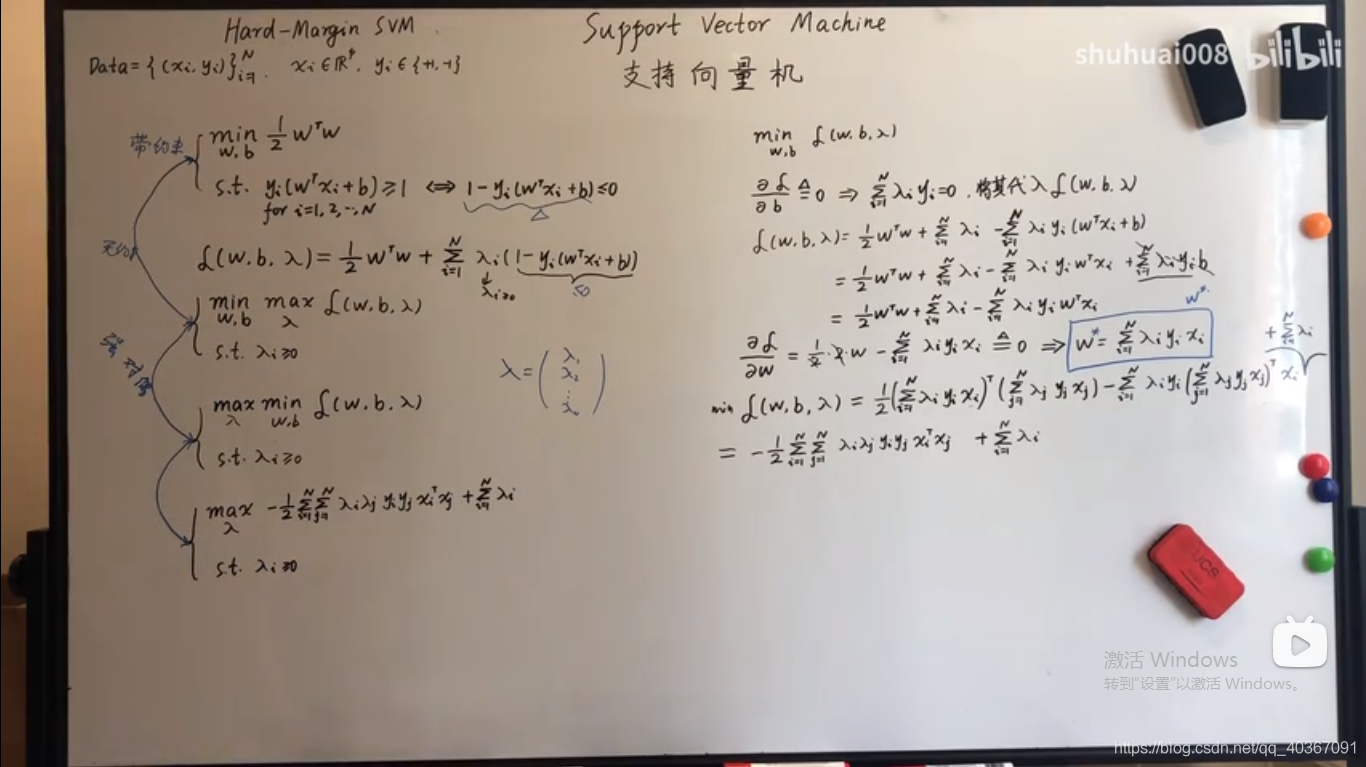 Hard-Margin SVM
Support Vector Machine
shuhuai008 bilibili
Data = {(xᵢ, yᵢ)}ᵢ₌₁ᴺ, xᵢ ∈ ℝᵖ, yᵢ ∈ {+1, -1}
支持向量机
带约束
min_{w,b} ½ wᵀw
s.t. yᵢ(wᵀxᵢ+b) ≥ 1 ⟺ 1-yᵢ(wᵀxᵢ+b) ≤ 0
for i=1,2,…,N
Δ
无约束
ℒ(w,b,λ) = ½ wᵀw + Σᵢ₌₁ᴺ λᵢ(1-yᵢ(wᵀxᵢ+b))
λᵢ≥0
≤0
min_{w,b} max_λ ℒ(w,b,λ)
s.t. λᵢ≥0
强对偶
λ = (λ₁ λ₂ ⋮ λ_N)
max_λ min_{w,b} ℒ(w,b,λ)
s.t. λᵢ≥0
max_λ -½ Σᵢ₌₁ᴺ Σⱼ₌₁ᴺ λᵢλⱼyᵢyⱼxᵢᵀxⱼ + Σᵢ₌₁ᴺ λᵢ
s.t. λᵢ≥0
min_{w,b} ℒ(w,b,λ)
∂ℒ/∂b ≜ 0 ⇒ Σᵢ₌₁ᴺ λᵢyᵢ=0, 将其代入 ℒ(w,b,λ)
ℒ(w,b,λ) = ½ wᵀw + Σᵢ₌₁ᴺ λᵢ - Σᵢ₌₁ᴺ λᵢyᵢ(wᵀxᵢ+b)
= ½ wᵀw + Σᵢ₌₁ᴺ λᵢ - Σᵢ₌₁ᴺ λᵢyᵢwᵀxᵢ + Σᵢ₌₁ᴺ λᵢyᵢb
= ½ wᵀw + Σᵢ₌₁ᴺ λᵢ - Σᵢ₌₁ᴺ λᵢyᵢwᵀxᵢ
w*
∂ℒ/∂w = ½·2·w - Σᵢ₌₁ᴺ λᵢyᵢxᵢ ≜ 0 ⇒ w* = Σᵢ₌₁ᴺ λᵢyᵢxᵢ
+ Σᵢ₌₁ᴺ λᵢ
min ℒ(w,b,λ) = ½(Σᵢ₌₁ᴺ λᵢyᵢxᵢ)ᵀ(Σⱼ₌₁ᴺ λⱼyⱼxⱼ) - Σᵢ₌₁ᴺ λᵢyᵢ(Σⱼ₌₁ᴺ λⱼyⱼxⱼ)ᵀxᵢ
= -½ Σᵢ₌₁ᴺ Σⱼ₌₁ᴺ λᵢλⱼyᵢyⱼxᵢᵀxⱼ + Σᵢ₌₁ᴺ λᵢ
UCS
激活 Windows
转到"设置"以激活 Windows。
https://blog.csdn.net/qq_40367091